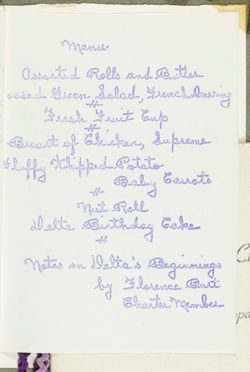 Menu
Assorted Rolls and Butter
ossed Green Salad, French Dressing
#
Fresh Fruit Cup
Breast of Chicken, Supreme
Fluffy Whipped Potato
Baby Carrots
#
Nut Roll
Delta Birthday Cake
#
Notes on Delta's Beginnings
by Florence Burt
Charter Member